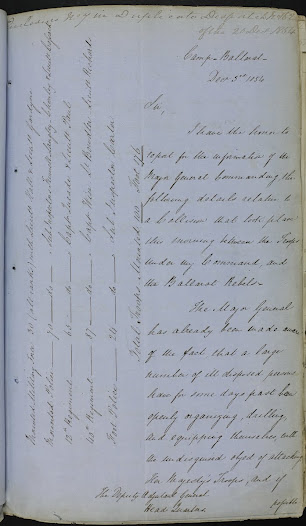 Enclosure No 7 in Duplicate Despatch No 162
of the 20 Dec 1854
Camp Ballaarat
Decr 3rd 1854
Sir,
I have the honor to
report for the information of the
Major General Commanding the
following details relative to
a Collision that took place
this morning between the Troops
under my Command, and
the Ballaarat Rebels.
The Major General
has already been made aware
of the fact that a large
number of ill disposed persons
have for some days past been
openly organizing, drilling,
and equipping themselves, with
the undisguised object of attacking
Her Majesty's Troops, and if
possible
The Deputy Adjutant General
Head Quarters
Mounted Military Force 30 (all ranks) with Lieuts Hall &
Mounted Police 70 do
12th Regiment 65 do Captn Lieuts & Lieutt Paul
40th Regiment 87 do Captn Wise Lt Bowdler Lieutt Richards
Foot Police 24 do Sub Inspector Carter
Total Troops Mounted 100. Foot 176